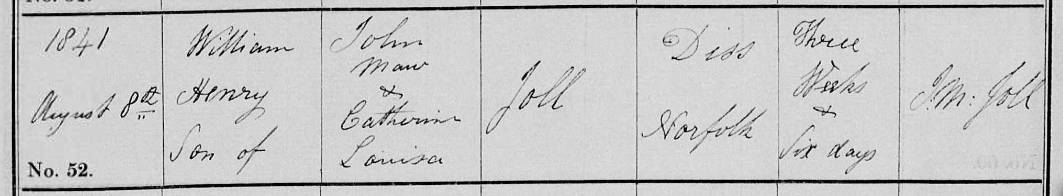 1841
August 8th
No. 52.
William
Henry
Son of
John
Maw
&
Catherine
Louisa
Joll
Diss
Norfolk
Three
Weeks
&
Six days
J. M. Joll